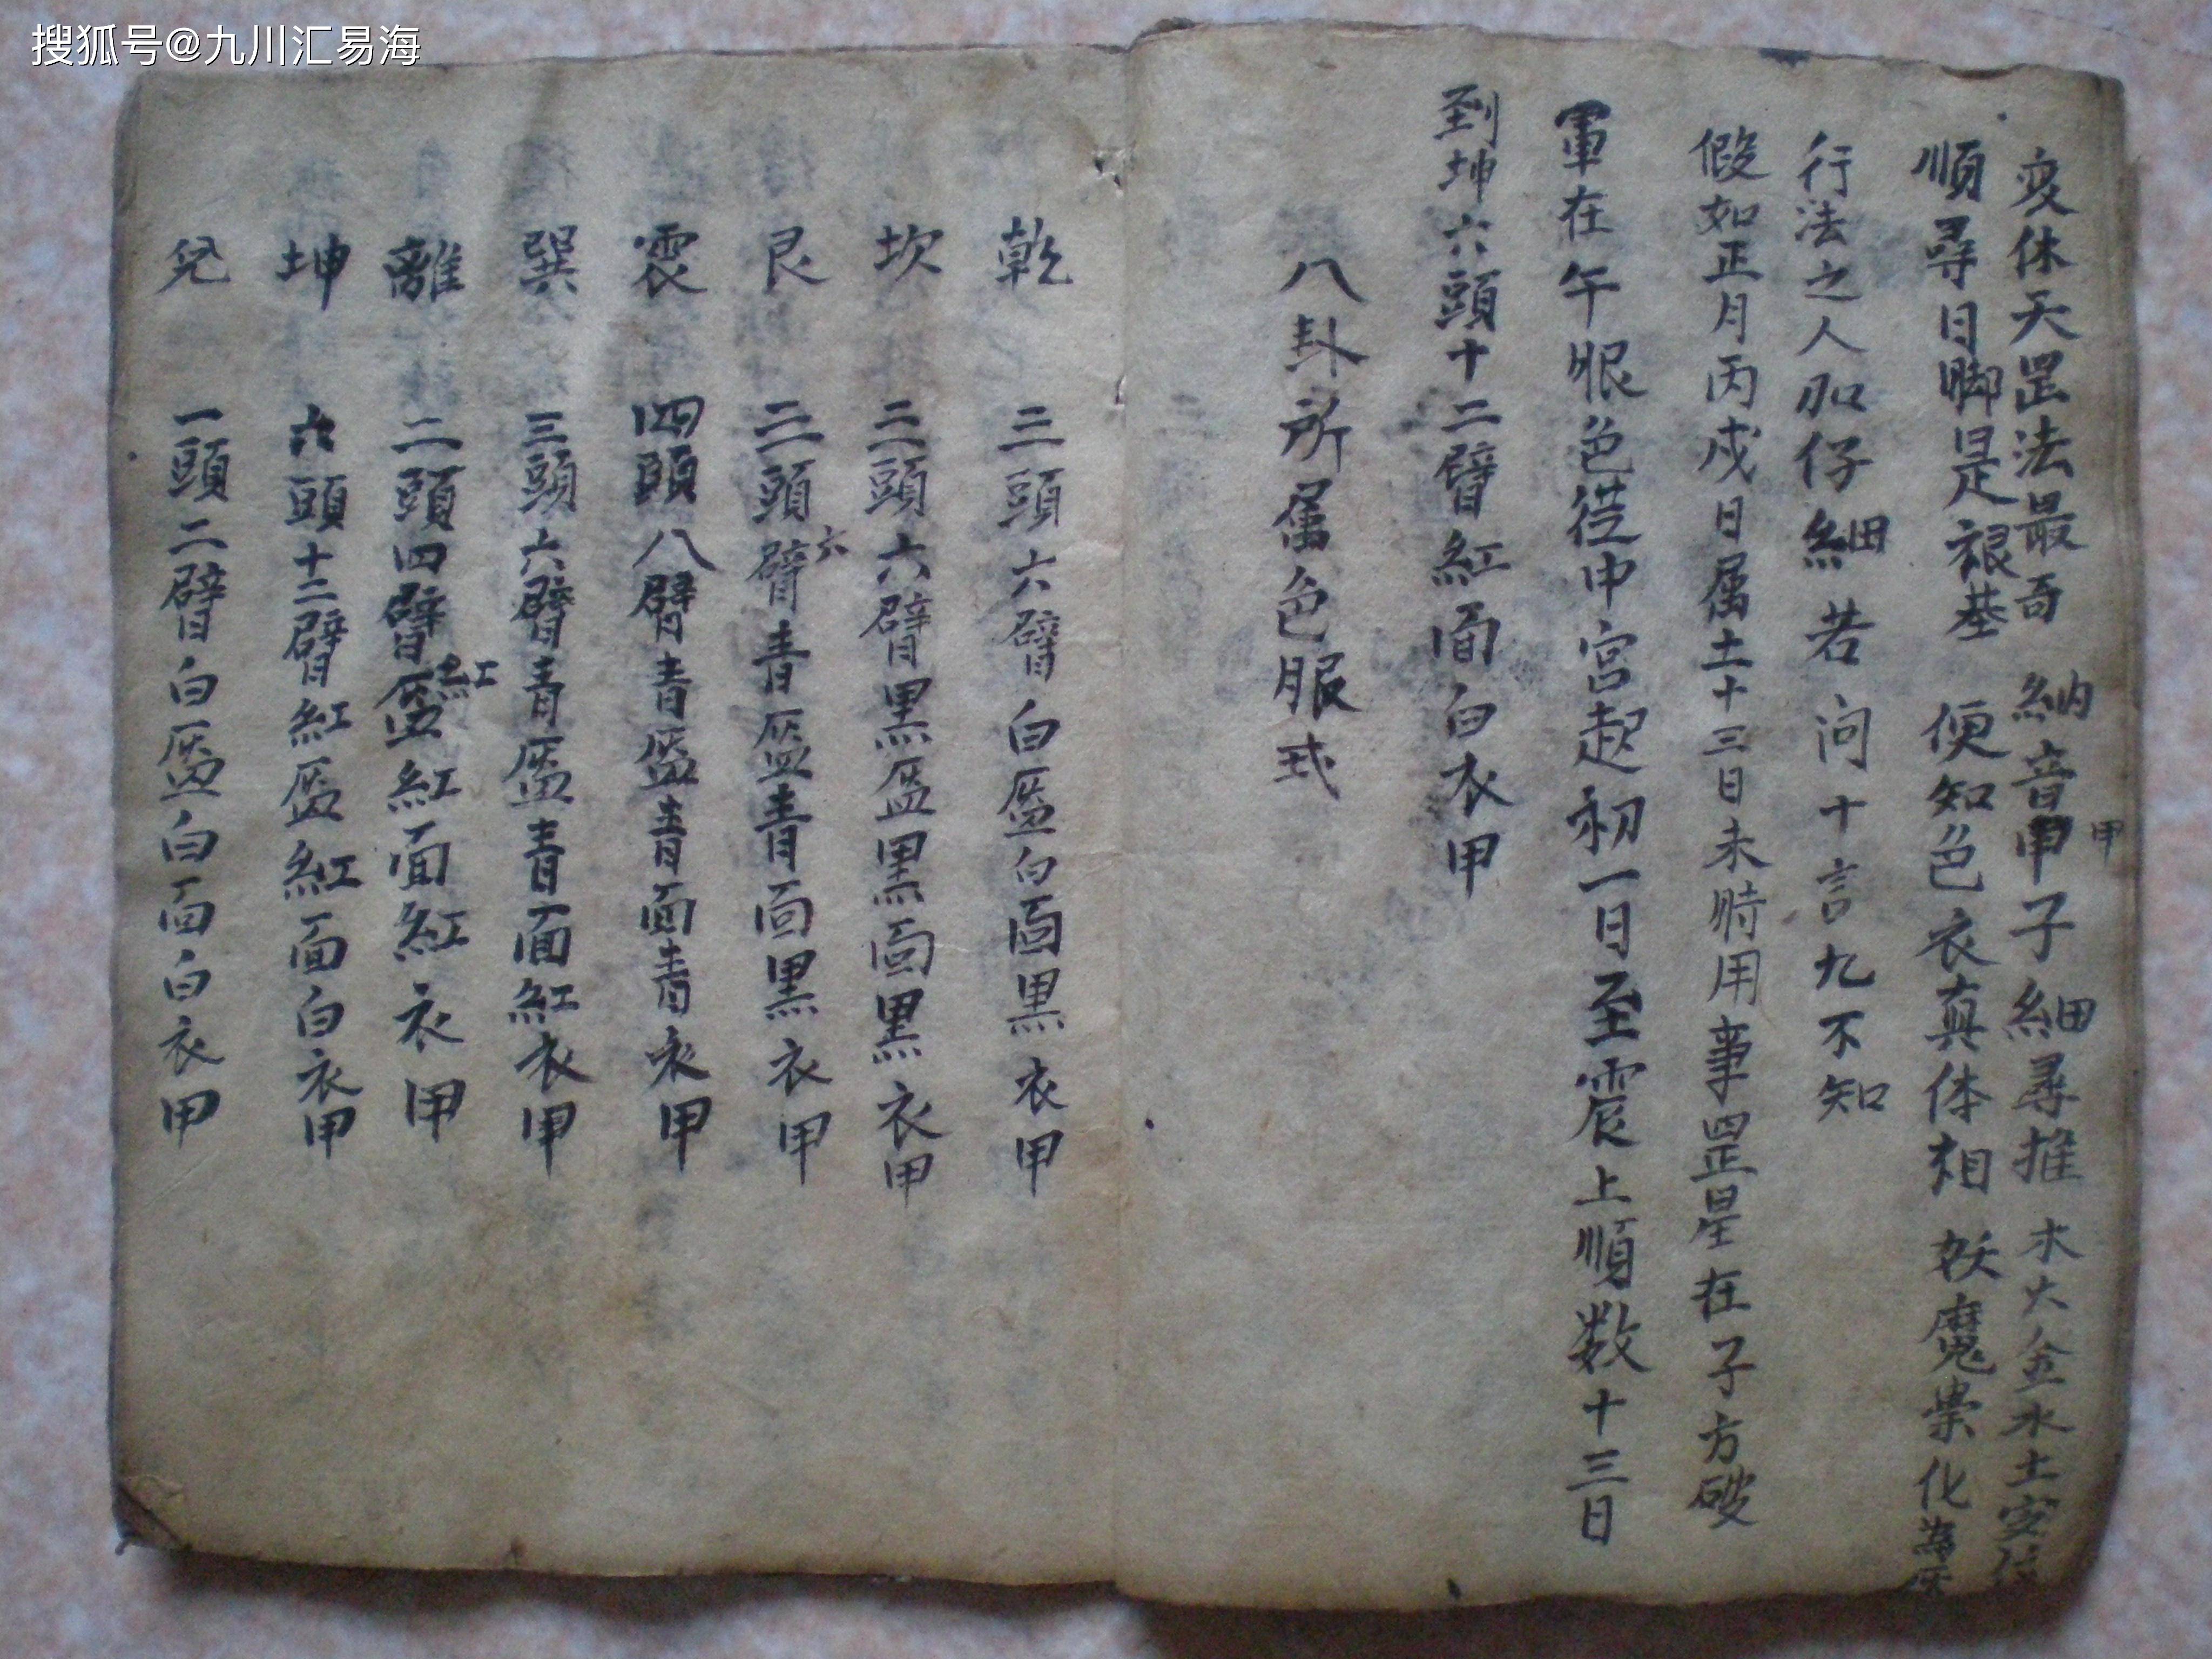 搜狐号@九川汇易海
变休天罡法最奇 納音甲子細尋推 木火金水土安
甲
順尋日脚是根基 便知色衣真体相 妖魔祟化為
行法之人加仔細 若问十言九不知
假如正月丙戌日属土十三日未時用事罡星在子方破
軍在午眼色從中宮起初一日至震上順数十三日
到坤六頭十二臂紅面白衣甲
八卦所属色服式
乾 三頭六臂白盔白面黑衣甲
坎 三頭六臂黑盔黑面黑衣甲
艮 三頭六臂青盔青面黑衣甲
震 四頭八臂青盔青面青衣甲
巽 三頭六臂青盔青面紅衣甲
離 二頭四臂紅盔紅面紅衣甲
坤 六頭十二臂紅盔紅面白衣甲
兑 一頭二臂白盔白面白衣甲